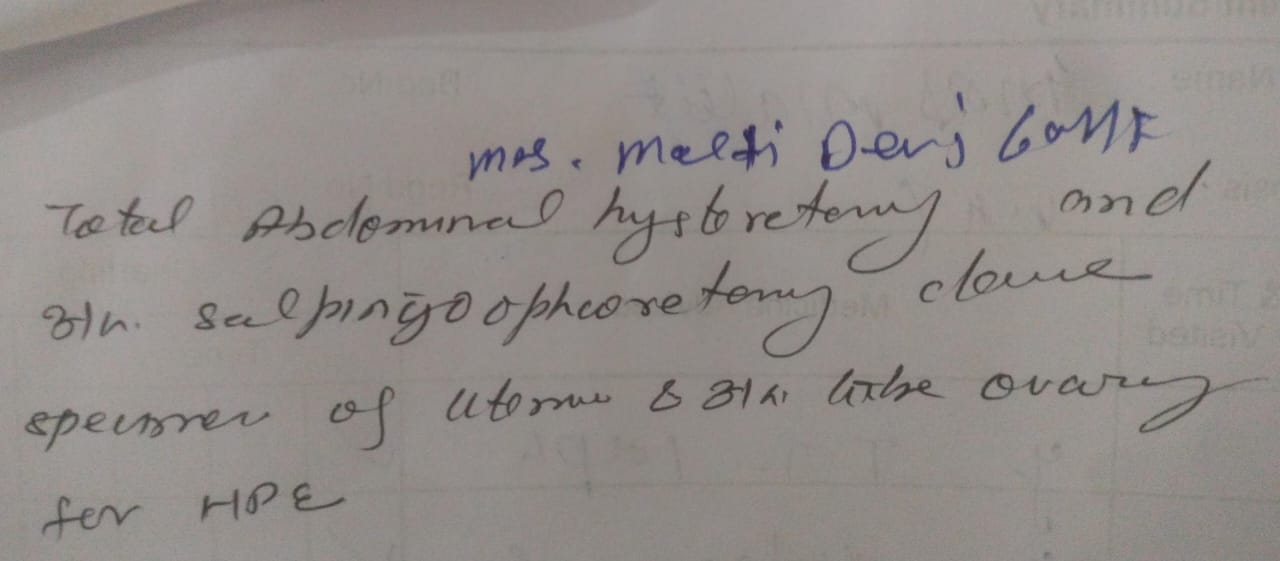 mrs. Malti Devi 60Y/F
Total Abdominal hystoretomy and
B/L. salpingoophoretomy done
specimen of uterus & B/L. tube ovary
for HPE